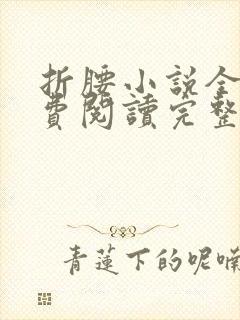 折腰小説全
費閱讀完整
青蓮下的呢喃